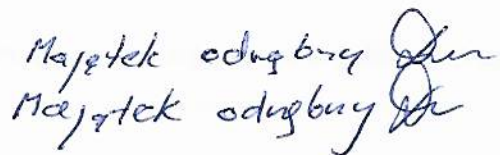 Majątek odrębny
Majątek odrębny